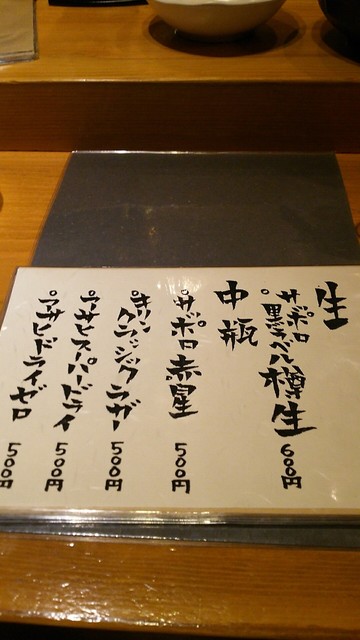 生
サッポロ
黒ラベル樽生 600円
中瓶
○サッポロ赤星 500円
○キリン
クラシックラガー 500円
○アサヒスーパードライ 500円
○アサヒドライゼロ 500円